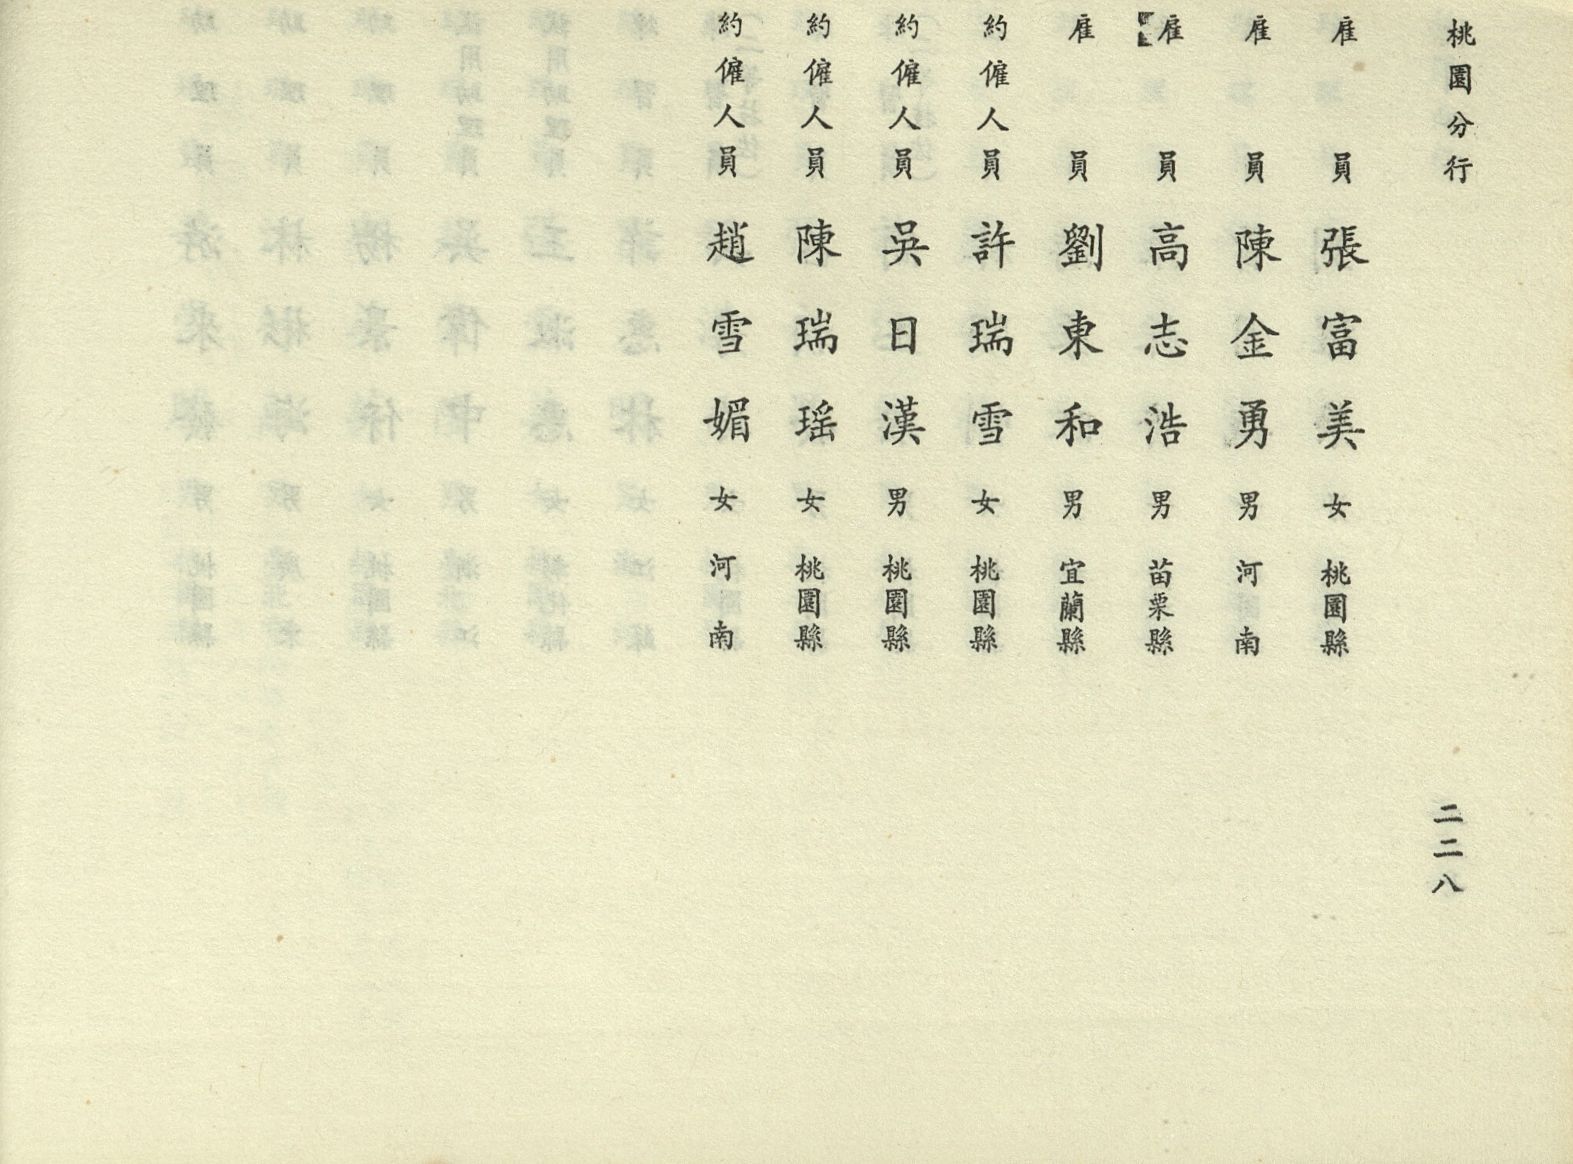 桃園分行
雇員 張富美 女 桃園縣
雇員 陳金勇 男 河南
雇員 高志浩 男 苗栗縣
雇員 劉東和 男 宜蘭縣
約僱人員 許瑞雪 女 桃園縣
約僱人員 吳日漢 男 桃園縣
約僱人員 陳瑞瑶 女 桃園縣
約僱人員 趙雪媚 女 河南
二二八